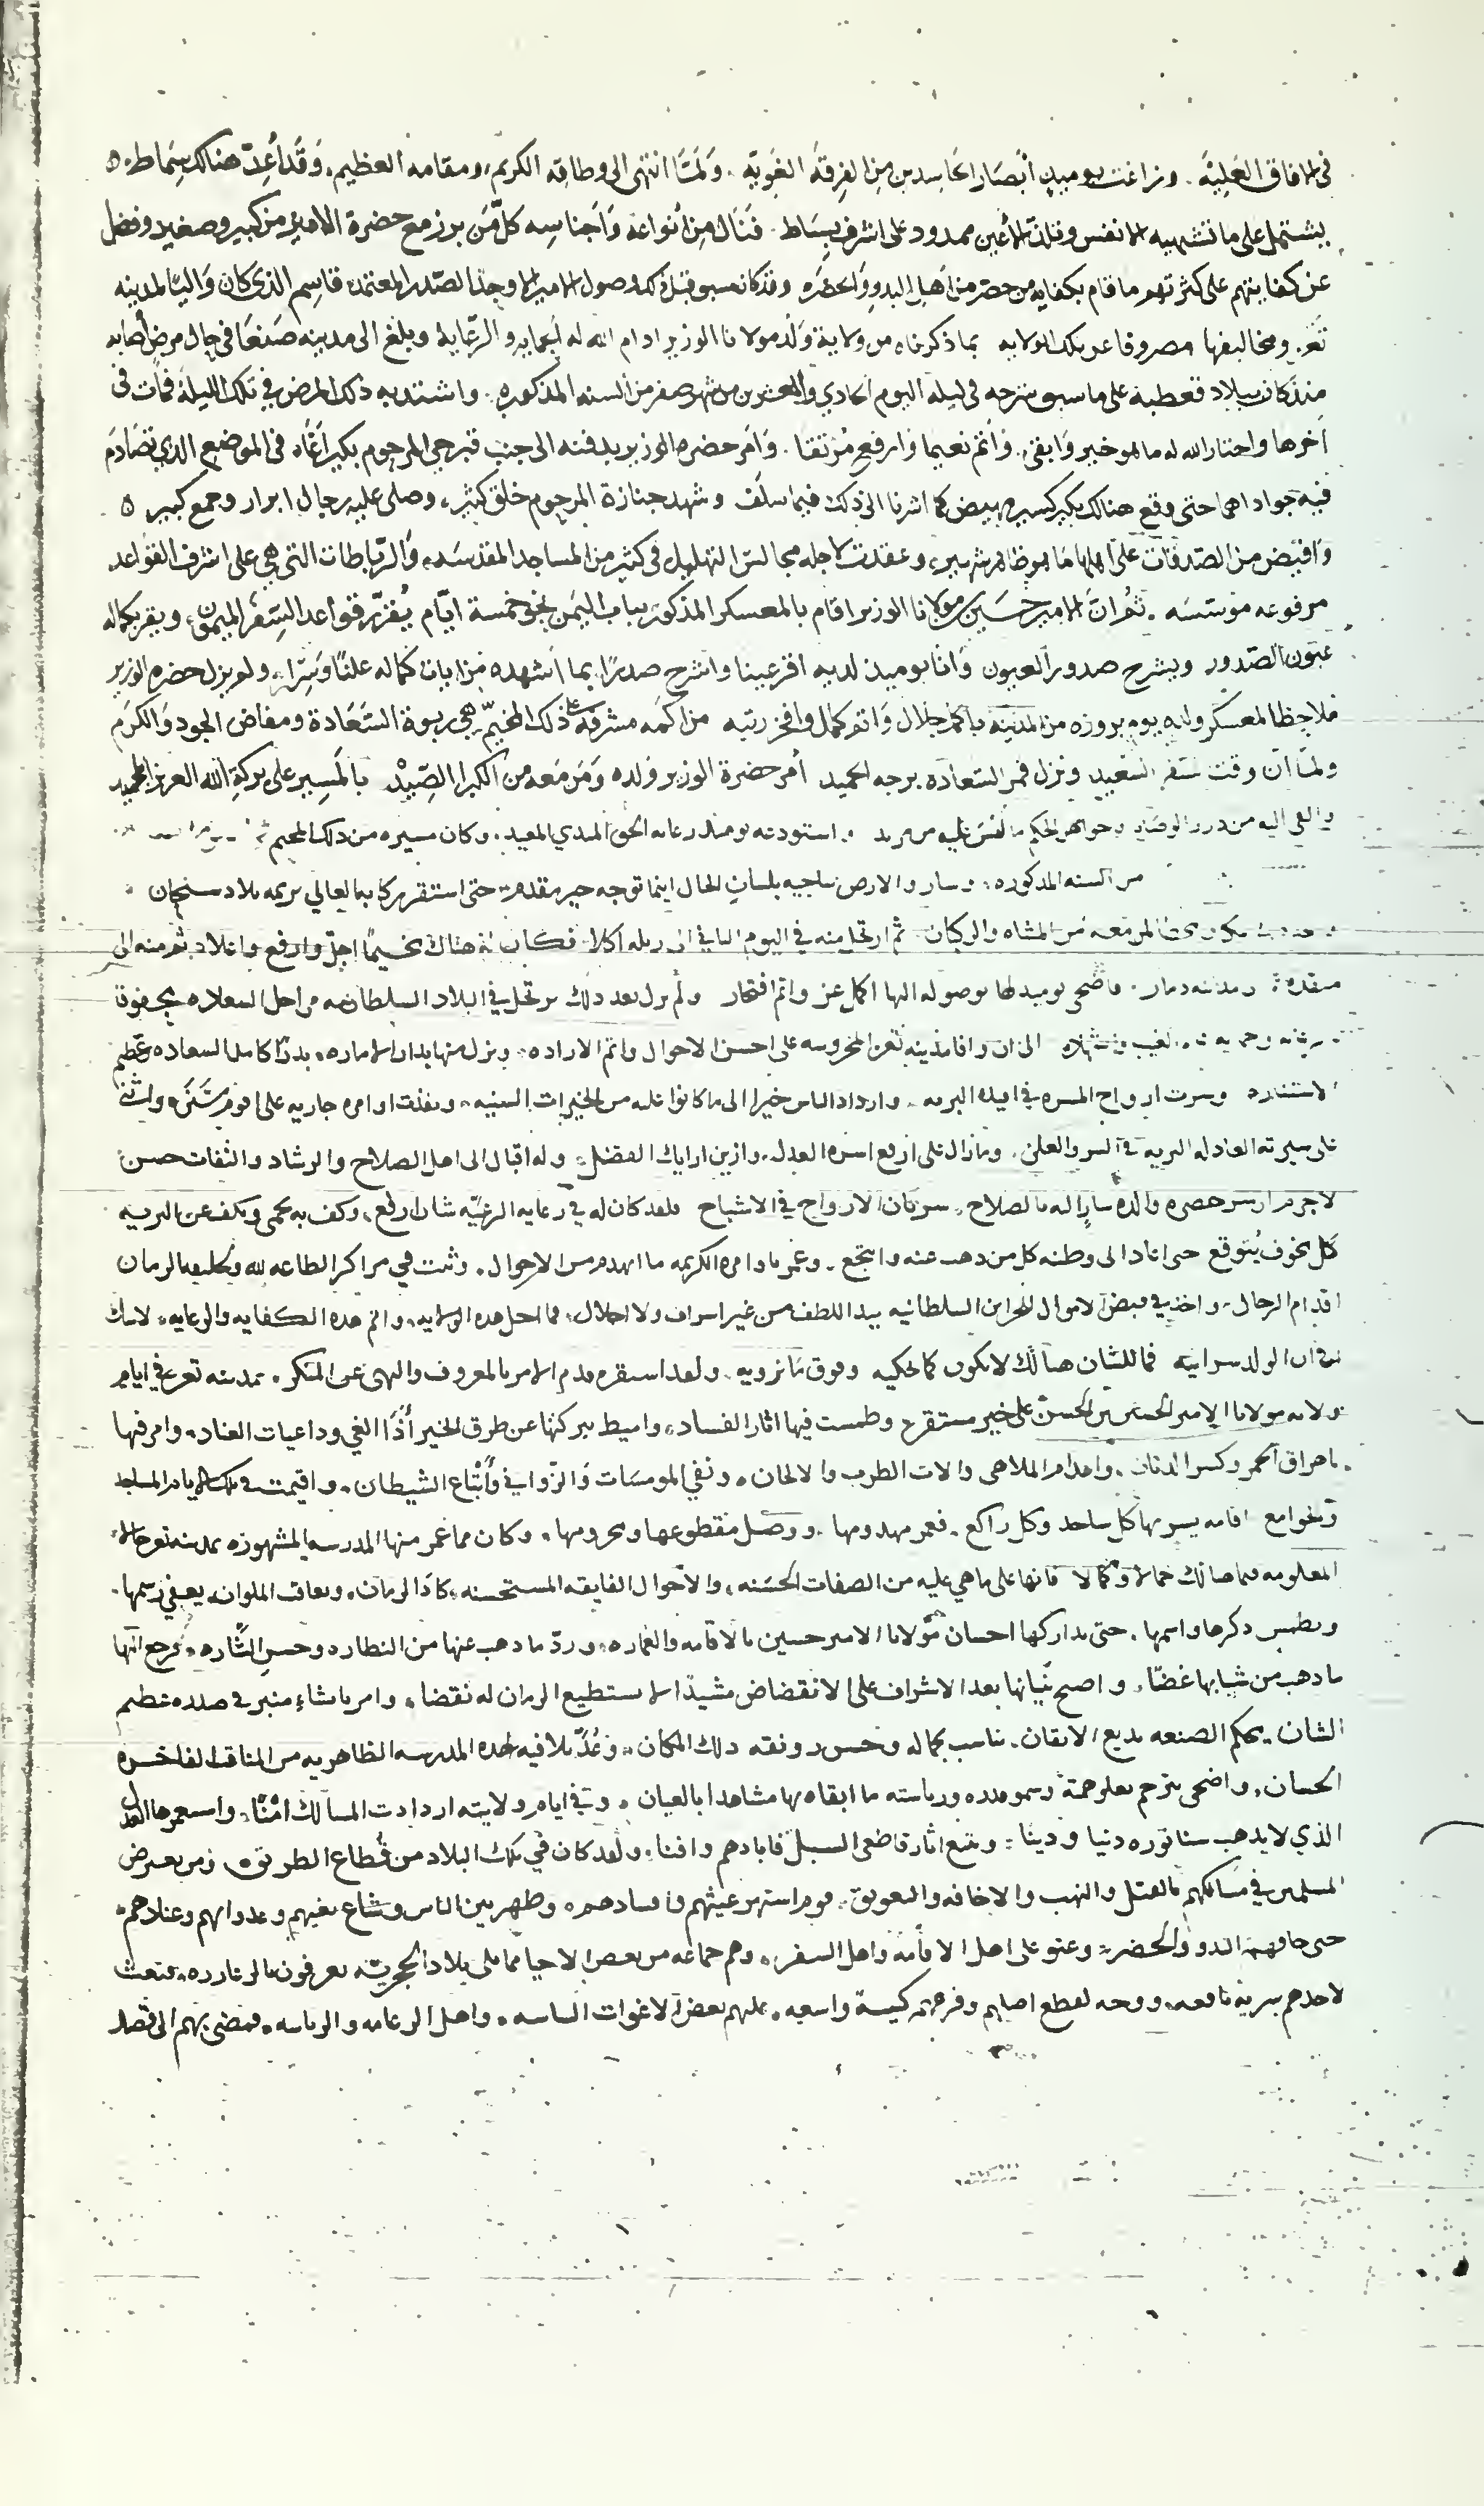 في الافاق العلية . وزاغت يوميذ أبصار الحاسدين من الفرقة الغوية . ولمّا انتهى الى وطاقه الكريم، ومقامه العظيم . وقد أعدّ هنالك سماط
يشتمل على ما تشتهيه الانفس وتلذ الأعين ممدود على اشرف بساط . فنال من أنواعه وأجناسه كل من برز مع حضرة الامير من كبير وصغير وفضل
عن كفايتهم على كثرتهم ما قام بكفاية من حضر من أهل البدو والحضره وقد كان سبق قبل ذلك وصول الامير الاوحد الصدر المعتمد قاسم الذي كان واليا لمدينه
تعز . ومخاليفها مصروفا عن تلك الولايه بما ذكرناه من ولاية ولد مولانا الوزير ادام الله له الحمايه والرعاية وبلغ الى مدينه صنعا في حال مرض أصابه
منذ كان ببلاد قعطبة على ما سبق شرحه في ليلة اليوم الحادي والعشرين من شهر صفر من السنه المذكوره . واشتد به ذلك المرض في تلك الليلة فمات في
آخرها واختار الله له ما هو خير وأبقى . وأتم نعيما وارفع مرتقا . وأمر حضره الوزير بدفنه الى جنب قبر المرحوم بكير آغاه في الموضع الذي تصادم
فيه جواداهما حتى وقع هنالك بكير كسير مهيض كما اشرنا الى ذلك فيما سلف وشهد جنازة المرحوم خلق كثير، وصلى عليه رجال ابرار وجمع كبير
وافيض من الصدقات على اهلها ما هو ظاهر شهير، وعقدت لاجله مجالس التهليل في كثير من المساجد المقدسه، والرباطات التي هي على اشرف القواعد
مرفوعه مؤسسه . ثم ان الامير حسين بن مولانا الوزير اقام بالمعسكر المذكور بباب اليمن نحو خمسة ايّام يقرّر قواعد السفر الميمون، ويقر بكماله
عيون الصدور ويشرح صدور العيون وانا يوميذ لديه اقر عينا وأشرح صدرًا بما أشهده من ايات كماله علنًا وسرًّا، ولم يزل حضره الوزير
ملاحظا لمعسكر ولده يوم بروزه من المدينه باكمل جلال وأتم كمال وافخر رتبه من اكمه مشرفة على ذلك المخيّم هي ربوة السعادة ومفاض الجود والكرم
ولمّا آن وقت سفر السعيد ونزل قمر السعاده برجه الحميد أمر حضرة الوزير ولده ومن معه من الكبرا الصّيد بالمسير على بركة الله العزيز الحميد
والقى اليه من درر الوصايا وجواهر الحكم ما ليس عليه من مزيد . استودعه يوميذ رعاية الحق المبدي المعيد . وكان مسيره من ذلك المخيم
من السنه المذكوره، وسار والارض تناجيه بلسان الحال اينما توجه خير مقدم حتى استقر ركابه العالي بريمه بلاد سنحان
لمن معه من المشاه والركبان . ثم ارتحل منه في اليوم الثاني الى فكان له هناك مخيّمًا اجلّ وارفع واعلا . ثم منه الى
مدينه ذمار . فاضحى يوميذ لها بوصوله اليها اكمل عز واتم افتخار ولم يزل بعد ذلك يرتحل في البلاد السلطانيه مراحل السعاده محفوفا
الى ان وافا مدينه تعز المحروسه على احسن الاحوال واتم الاراده . ونزل منها بدار الاماره . بدرًا كامل السعاده وعظيم
وسرت ارواح المسره في افيده البريه . وازداد الناس خيرا الى ما كانوا عليه من الخيرات السنيه . ونفذت اوامره جاريه على اقوم سنن، واثنى
على سيرته العادله البريه في السر والعلن . وما زال على ارفع اسره العدل . وازين ارايك الفضل . وله اقبال الى اهل الصلاح والرشاد والتفات حسن
لاجرم ان سر حضره والده ساير اليه بالصلاح . سريان الارواح في الاشباح فلقد كان له في رعايه الرعيّه شان رفع . وكف به يحمي ويكف عن البريه
كل مخوف يتوقع حتى اعاد الى وطنه كل من ذهب عنه وانتجع . وعمر باوامره الكريمه ما انهدم من الاحوال . وثبت في مراكز الطاعه لله ولخليفه الزمان
اقدام الرجال . واخذ في قبض الاموال للخزاين السلطانيه بيد اللطف من غير اسراف ولا اخلال . فما اجل هذه الولايه . واتم هذه الكفايه والرعايه . لا شك
في ان الولد سر ابيه فما للشان هنالك لا يكون كما نحكيه وفوق ما نرويه . ولقد استقر قدم الامر بالمعروف والنهي عن المنكر . بمدينه تعز في ايام
ولايه مولانا الامير الحسين بن الحسن على خير مستقر، وطمست فيها اثار الفساد، واميط ببركتها عن طرق الخير أذا الغي وداعيات العناد . وامر فيها
باحراق الخمر وكسر الدنان . واعدام الملاهي والات الطرب والالحان . ونفي المومسات والزواني وأتباع الشيطان . واقيمت في تلك الايام المساجد
والجوامع اقامه يسر بها كل ساجد وكل راكع . فعمر مهدومها . ووصل مقطوعها ومحرومها . وكان مما عمر منها المدرسه المشهوره بمدينه تعز
المعلومه فيما هنالك جمالا وكمالا فانها على ما هي عليه من الصفات الحسنه، والاحوال الفايقه المستحسنه، كاد الزمان، وتعاقب الملوان يعفي رسمها .
ويطمس ذكرها واسمها . حتى تداركها احسان مولانا الامير حسين بالاقامه والعماره . وردّ ما ذهب عنها من النظاره وحسن الشاره . فرجع اليها
ما ذهب من شبابها غضّا . واصبح بنيانها بعد الاشراف على الانقضاض مشيدًا لا يستطيع الزمان له نقضا . وامر بانشاء منبر في صدده عظيم
الشان . محكم الصنعه بديع الاتقان . يناسب بجماله وحسن رونقه ذلك المكان . وعُدّ تلافيه لهذه المدرسه الظاهريه من المناقب الفاخره
الحسان . واضحى يترجم بعلو همة وسمو قدره ورياسته ما ابقاه بها مشاهدا بالعيان . وفي ايام ولايته ازدادت المسالك امنًا . واستعمرها العدل
الذي لا يذهب سنا نوره دنيا ودينا . وتتبع اثار قاطعي السبل فابادهم وافنا . ولقد كان في تلك البلاد من قُطاع الطريق ومن يعترض
المسلمين في مسالكهم بالقتل والنهب والاخافه والتعويق . قوم اشتهر عيثهم وفسادهم . وظهر بين الناس وشاع بغيهم وعدوانهم وعنادهم .
حتى خافهم البدو والحضر . وعتو على اهل الاقامه واهل السفر . وهم جماعه من بعض الاحيا مما يلي بلاد الحجريّه يعرفون بالزعازره . فبعث
لاخذهم سرية نافعه . ووجه لقطع اصلهم وفرعهم كتيبة واسعه . عليهم بعض الاغوات الباسه . واهل الزعامه والرياسه . فمضى بهم الى قصد